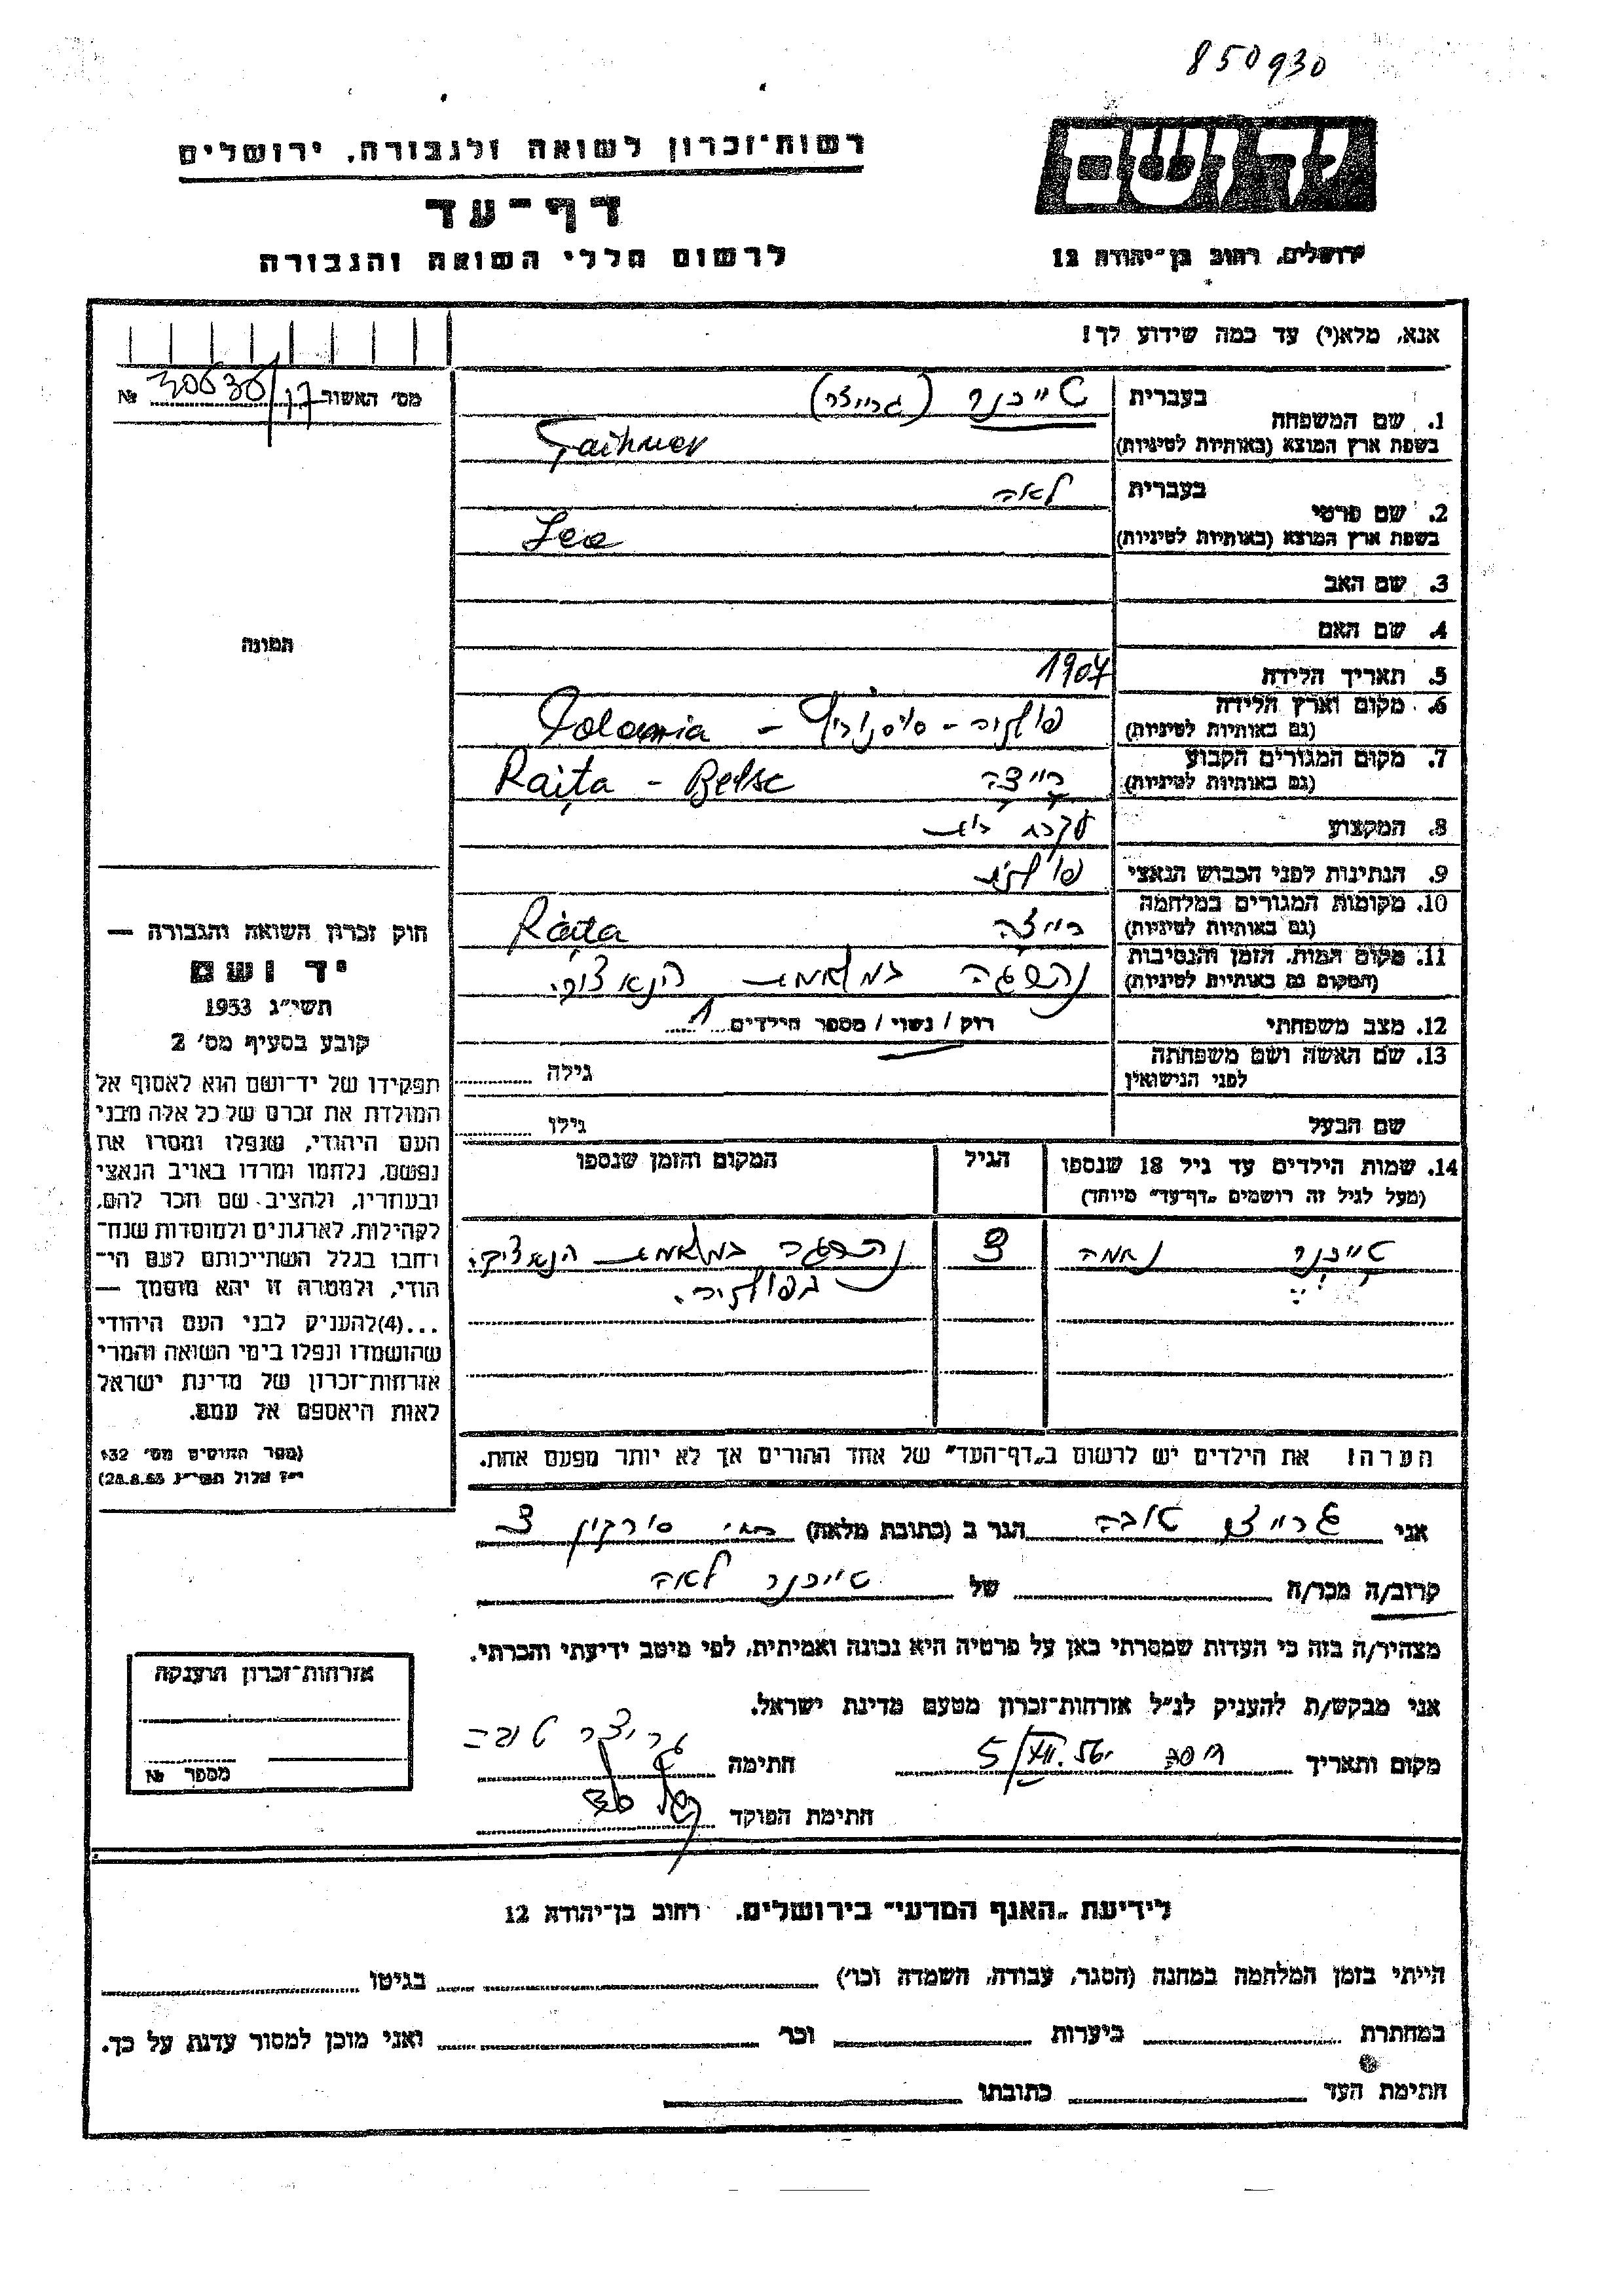 850930
רשות־זכרון לשואה ולגבורה, ירושלים
דף־עד
לרשום חללי השואה והגבורה
יד ושם
ירושלים, רחוב בן־יהודה 12
אנא, מלא(י) עד כמה שידוע לך!
מס' האשור №
1. שם המשפחה
בעברית טייכנר (גרייצר)
בשפת ארץ המוצא (באותיות לטיניות) Taihner
2. שם פרטי
בעברית לאה
בשפת ארץ המוצא (באותיות לטיניות) Lea
3. שם האב
4. שם האם
5. תאריך הלידה 1907
6. מקום וארץ הלידה
(גם באותיות לטיניות) פולניה -
7. מקום המגורים הקבוע
(גם באותיות לטיניות) רייצה Raița - Belsc
8. המקצוע עקרת בית
9. הנתינות לפני הכבוש הנאצי פולנית
10. מקומות המגורים במלחמה
(גם באותיות לטיניות) רייצה Raița
11. מקום המות, הזמן והנסיבות
(המקום גם באותיות לטיניות) נהרגה במלחמת הנאצים.
12. מצב משפחתי רוק / נשוי / מספר הילדים 1
13. שם האשה ושם משפחתה
לפני הנישואין גילה
שם הבעל גילו
14. שמות הילדים עד גיל 18 שנספו
(מעל לגיל זה רושמים „דף־עד" מיוחד)
הגיל
המקום והזמן שנספו
טייכנר נחמה
נהרגה במלחמת הנאצים.
בפולניה.
הערה! את הילדים יש לרשום ב„דף־העד" של אחד ההורים אך לא יותר מפעם אחת.
התמונה
חוק זכרון השואה והגבורה —
יד ושם
תשי"ג 1953
קובע בסעיף מס' 2
תפקידו של יד־ושם הוא לאסוף אל
המולדת את זכרם של כל אלה מבני
העם היהודי, שנפלו ומסרו את
נפשם, נלחמו ומרדו באויב הנאצי
ובעוזריו, ולהציב שם וזכר להם,
לקהילות, לארגונים ולמוסדות שנח־
רחבו בגלל השתייכותם לעם הי־
הודי, ולמטרה זו יהא מוסמך —
...(4)להעניק לבני העם היהודי
שהושמדו ונפלו בימי השואה והמרי
אזרחות־זכרון של מדינת ישראל
לאות היאספם אל עמם.
(ספר החוקים מס' 132
י"ז אלול תשי"ג 28.8.53)
אני גרייצר טובה הגר ב (כתובת מלאה)
קרוב/ה מכר/ה של טייכנר לאה
מצהיר/ה בזה כי העדות שמסרתי כאן על פרטיה היא נכונה ואמיתית, לפי מיטב ידיעתי והכרתי.
אני מבקש/ת להעניק לנ"ל אזרחות־זכרון מטעם מדינת ישראל.
מקום ותאריך חיפה 5/VII.56 חתימה גרייצר טובה
חתימת הפוקד
אזרחות־זכרון הוענקה
מספר №
לידיעת „האגף המדעי" בירושלים, רחוב בן־יהודה 12
הייתי בזמן המלחמה במחנה (הסגר, עבודה, השמדה וכו') בגיטו
במחתרת ביערות וכו' ואני מוכן למסור עדות על כך.
חתימת העד כתובתו